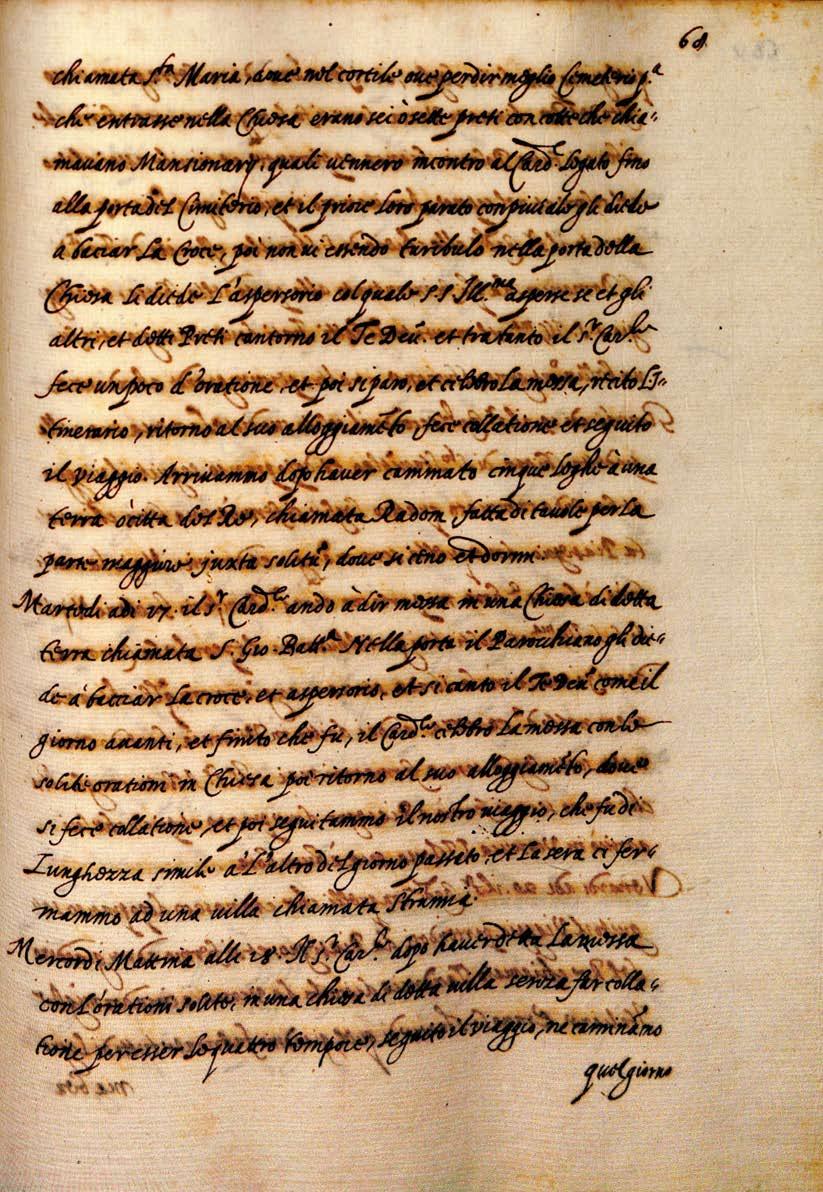 68
chiamata S.ta Maria, doue nel cortile oue per dir meglio Cemeterio p.a
che entrasse nella Chiesa erano sei ò sette preti con cotte che chia-
mauano Mansionarij, quali uennero incontro al Card. Legato fino
alla porta del Cimiterio, et il priore loro parato con piuiale gli diede
à baciar La Croce, poi non ui essendo turibulo nella porta della
Chiesa li diede L'aspersorio col quale S.S. Ill.ma asperse se et gli
altri, et detti Preti cantorno il Te Deũ. et tra tanto il S.r Car.le
fece un poco d'oratione, et poi si paro, et celebro La messa, recito L'I-
tinerario, ritorno al suo alloggiamẽto, fece collatione et seguito
il viaggio. Arriuammo dopo hauer caminato cinque leghe à una
terra ò citta del Re, chiamata Radom fatta di tauole per La
parte maggiore juxta solitũ, doue si ceno et dormi.
Martedi adi 17. il S.r Card.le ando à dir messa in una Chiesa di detta
terra chiamata S. Gio. Batt.a Nella porta il Parochiano gli die-
de à bacciar La croce, et aspersorio, et si canto il Te Deũ come il
giorno auanti, et finito che fu, il Card.le celebro La messa con le
solite orationi in Chiesa poi ritorno al suo alloggiamẽto, doue
si fece collatione, et poi seguitammo il nostro uiaggio, che fu di
Lunghezza simile à L'altro del giorno passato, et La sera ci fer-
mammo ad una uilla chiamata
Mercordi Mattina alli 18. Il S.r Car.le dopo hauer detta La messa
con L'orationi solite, in una chiesa di detta uilla senza far colla-
tione per esser Le quattro tempore, seguito il viaggio, ne caminãmo
quel giorno